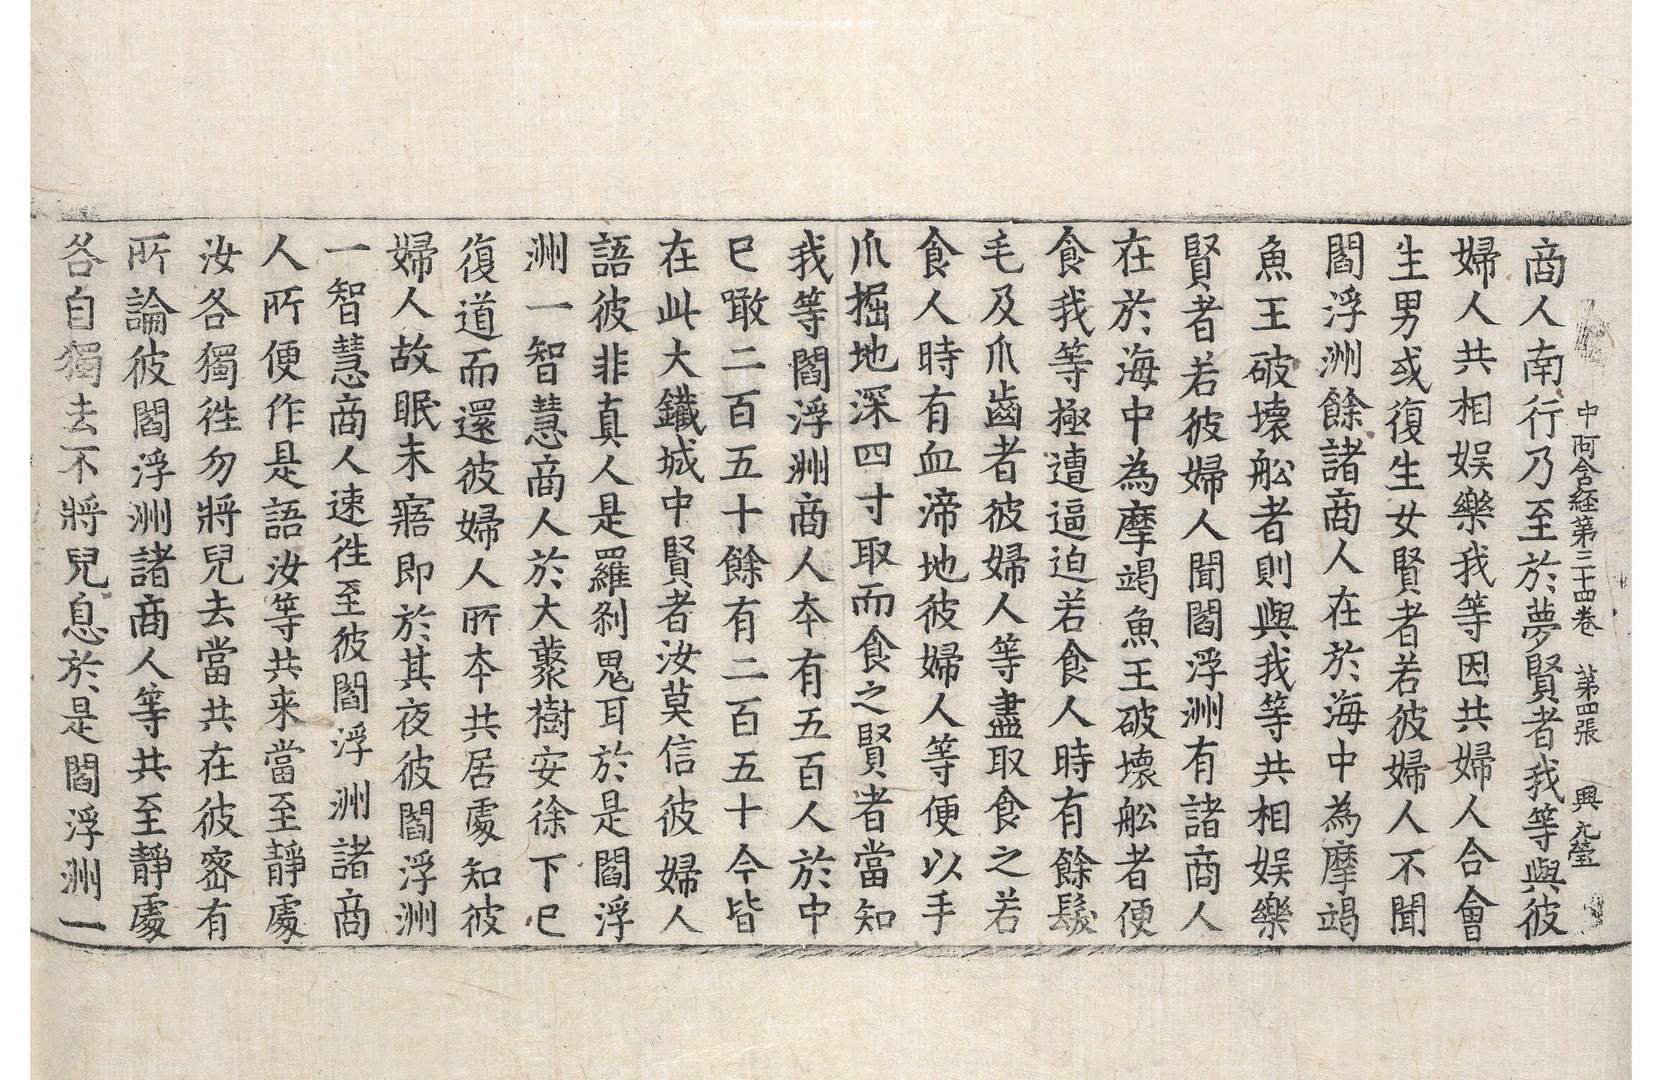 中阿含経第三十四卷　第四張　興
商人南行乃至於夢賢者我等與彼
婦人共相娛樂我等因共婦人合會
生男或復生女賢者若彼婦人不聞
閻浮洲餘諸商人在於海中為摩竭
魚王破壞舩者則與我等共相娛樂
賢者若彼婦人聞閻浮洲有諸商人
在於海中為摩竭魚王破壞舩者便
食我等極遭逼迫若食人時有餘髮
毛及爪齒者彼婦人等盡取食之若
食人時有血渧地彼婦人等便以手
爪掘地深四寸取而食之賢者當知
我等閻浮洲商人夲有五百人於中
已噉二百五十餘有二百五十今皆
在此大鐵城中賢者汝莫信彼婦人
語彼非真人是羅刹鬼耳於是閻浮
洲一智慧商人於大叢樹安徐下已
復道而還彼婦人所夲共居處知彼
婦人故眠未寤即於其夜彼閻浮洲
一智慧商人速徃至彼閻浮洲諸商
人所便作是語汝等共来當至靜處
汝各獨徃勿將兒去當共在彼密有
所論彼閻浮洲諸商人等共至靜處
各自獨去不將兒息於是閻浮洲一